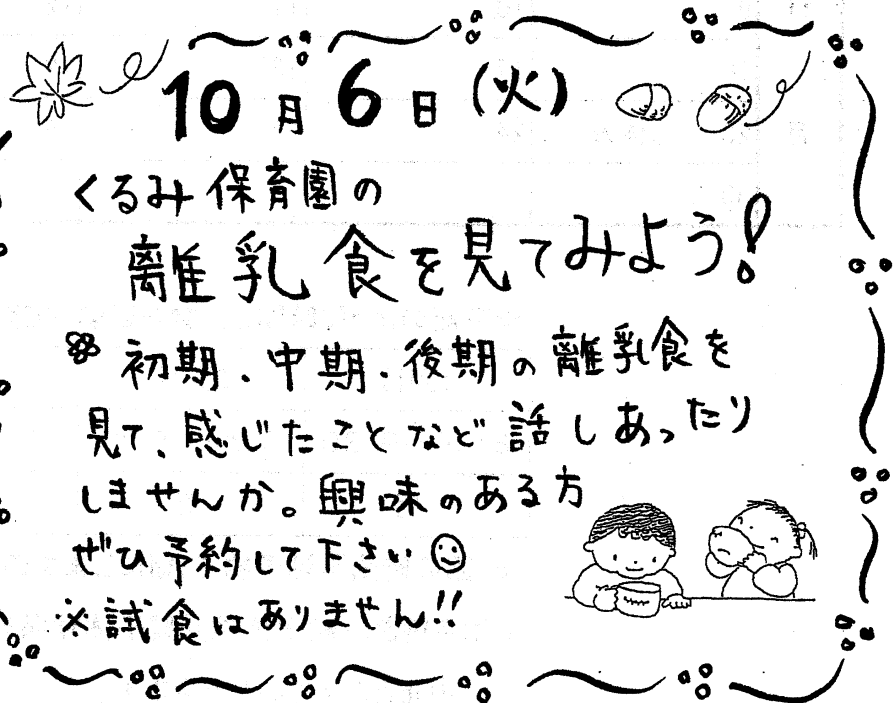 10月6日(火)
くるみ保育園の
離乳食を見てみよう!
初期・中期・後期の離乳食を
見て、感じたことなど話しあったり
しませんか。興味のある方
ぜひ予約して下さい
※試食はありません!!